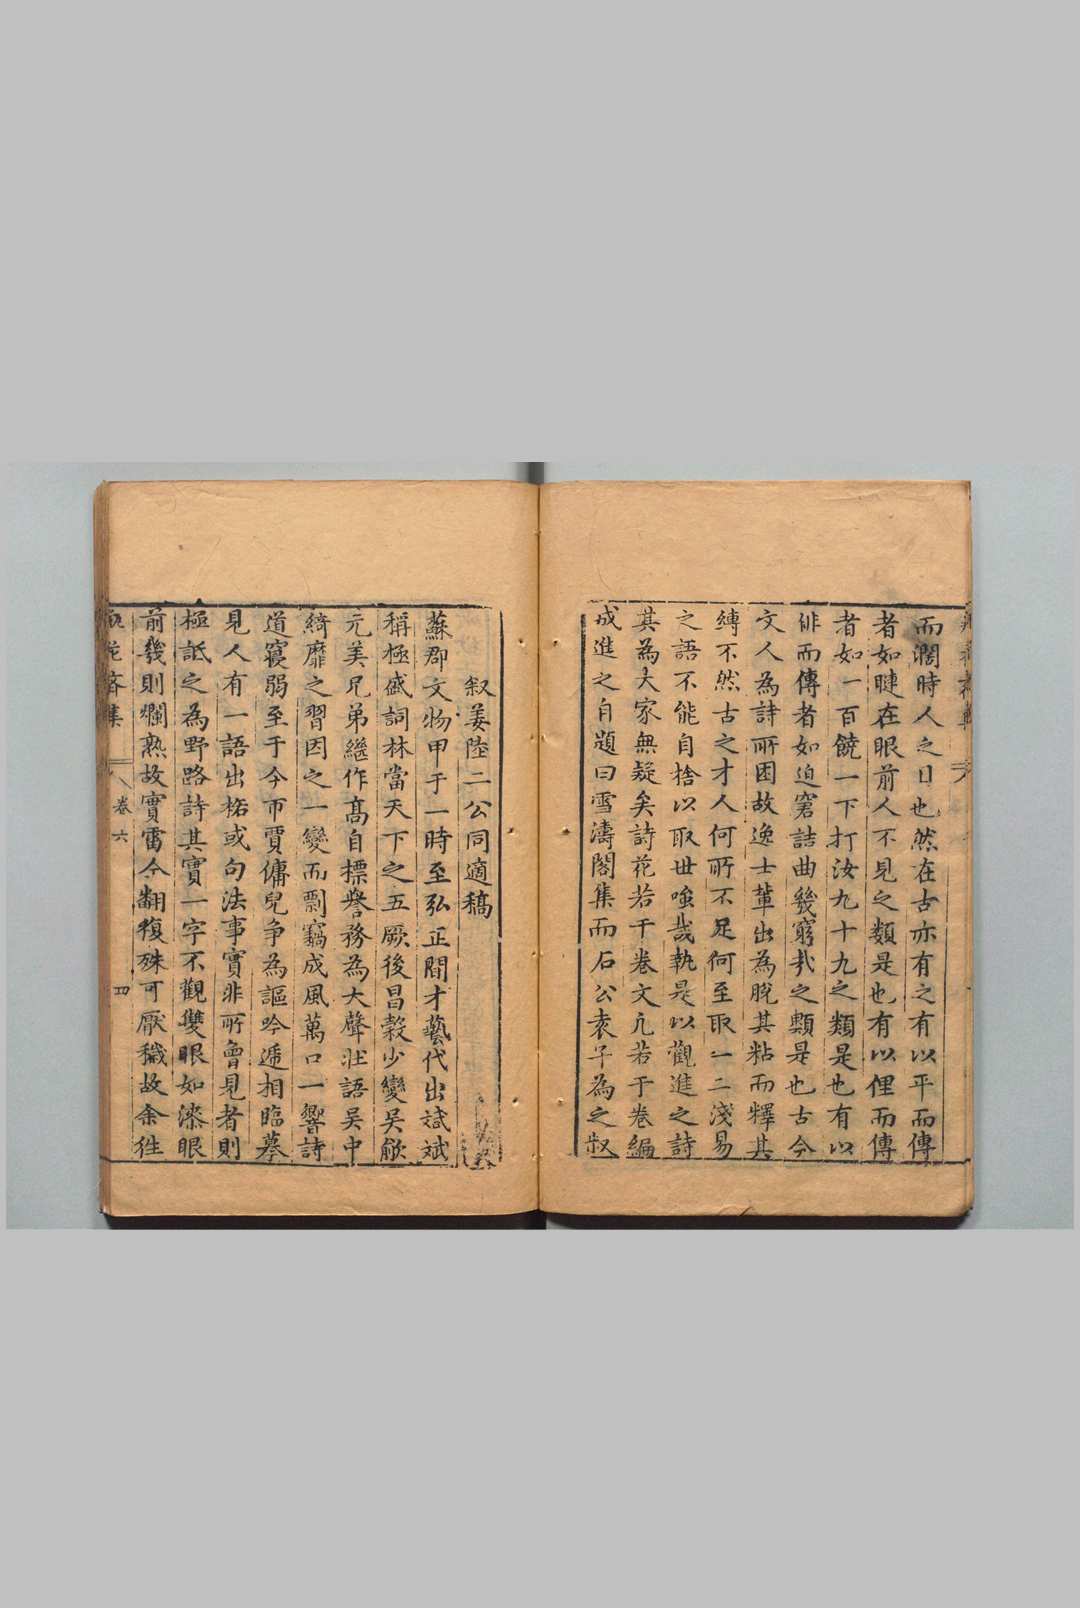 而濶時人之目也然在古亦有之有以平而傳
者如睫在眼前人不見之類是也有以俚而傳
者如一百饒一下打汝九十九之類是也有以
俳而傳者如迫窘詰曲幾窮哉之類是也古今
文人為詩所困故逸士輩出為脫其粘而釋其
縛不然古之才人何所不足何至取一二淺易
之語不能自捨以取世嗤哉執是以觀進之詩
其為大家無疑矣詩花若干卷文凢若于卷編
成進之自題曰雪濤閣集而石公袁子為之叙
叙姜陸二公同適稿
蘇郡文物甲于一時至弘正間才藝代出斌斌
稱極盛詞林當天下之五厥後昌榖少變吴歈
元美兄弟繼作髙自標譽務為大聲壯語吴中
綺靡之習因之一變而剽竊成風萬口一響詩
道寖弱至于今市賈傭兒争為謳吟遞相臨摹
見人有一語出格或句法事實非所曾見者則
極詆之為野路詩其實一字不觀雙眼如漆眼
前幾則爛熟故實雷仝翻復殊可厭穢故余往
卷六
四